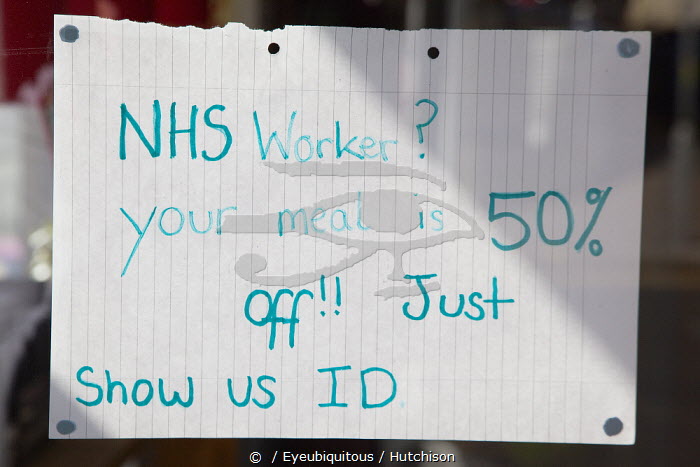 NHS Worker?
your meal is 50%
off!! Just
Show us ID
© / Eyeubiquitous / Hutchison